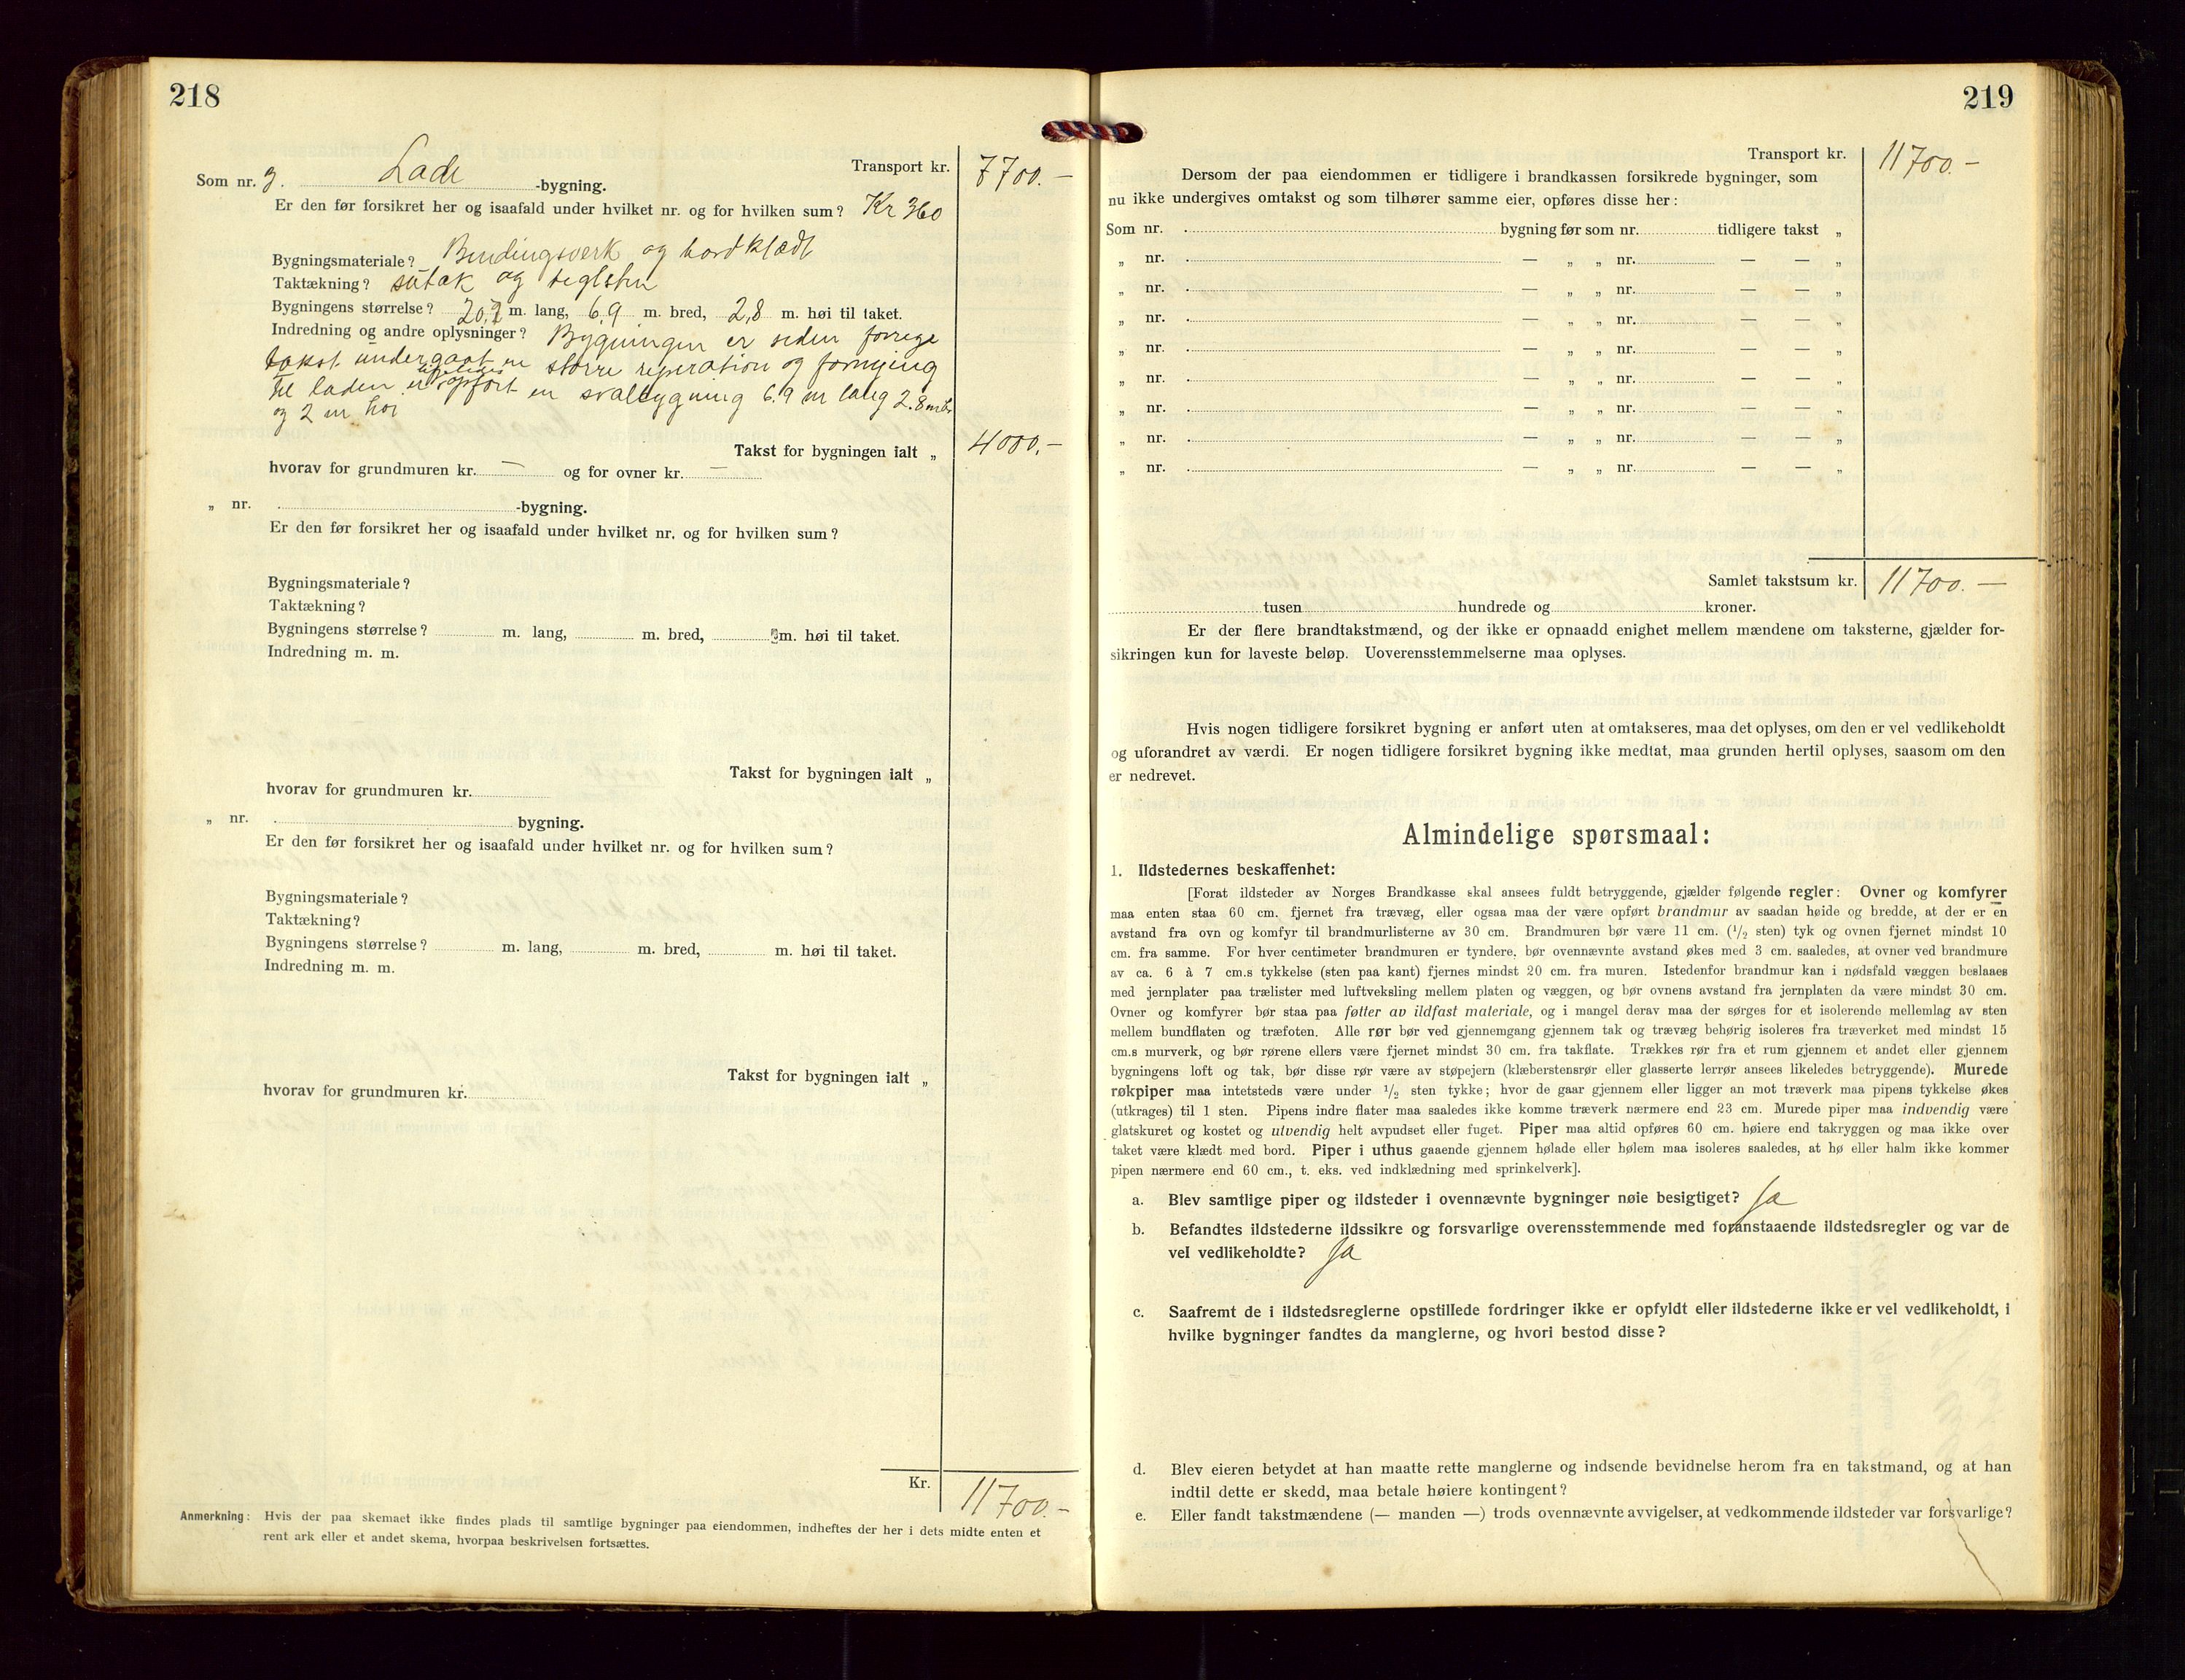 218
Transport kr. 7700.-
Som nr. 3. Lade -bygning.
Er den før forsikret her og isaafald under hvilket nr. og for hvilken sum? Kr 360
Bygningsmateriale? Bindingsverk og bordklædt
Taktækning? sutak og teglsten
Bygningens størrelse? 20,2 m. lang, 6,9 m. bred, 2,8 m. høi til taket.
Indredning og andre oplysninger? Bygningen er siden forrige
takst undergaat en større reperation og fornying
Til laden er ligeledes opført en svalbygning 6.9 m lang 2.8 m br
og 2 m høi
Takst for bygningen ialt „ 4000,-
hvorav for grundmuren kr. — og for ovner kr. —
„ nr. -bygning.
Er den før forsikret her og isaafald under hvilket nr. og for hvilken sum?
Bygningsmateriale?
Taktækning?
Bygningens størrelse? m. lang, m. bred, m. høi til taket.
Indredning m. m.
Takst for bygningen ialt „
hvorav for grundmuren kr.
„ nr. bygning.
Er den før forsikret her og isaafald under hvilket nr. og for hvilken sum?
Bygningsmateriale?
Taktækning?
Bygningens størrelse? m. lang, m. bred, m. høi til taket.
Indredning m. m.
Takst for bygningen ialt „
hvorav for grundmuren kr.
Kr. 11700.-
Anmerkning: Hvis der paa skemaet ikke findes plads til samtlige bygninger paa eiendommen, indheftes der her i dets midte enten et
rent ark eller et andet skema, hvorpaa beskrivelsen fortsættes.
219
Transport kr. 11700.-
Dersom der paa eiendommen er tidligere i brandkassen forsikrede bygninger, som
nu ikke undergives omtakst og som tilhører samme eier, opføres disse her:
Som nr. bygning før som nr. tidligere takst „
„ nr. — „ „ nr. — — „
„ nr. — „ „ nr. — — „
„ nr. — „ „ nr. — — „
„ nr. — „ „ nr. — — „
„ nr. — „ „ nr. — — „
„ nr. — „ „ nr. — — „
„ nr. — „ „ nr. — — „
„ nr. — „ „ nr. — — „
Samlet takstsum kr. 11700.—
tusen hundrede og kroner.
Er der flere brandtakstmænd, og der ikke er opnaadd enighet mellem mændene om taksterne, gjælder for-
sikringen kun for laveste beløp. Uoverensstemmelserne maa oplyses.
Hvis nogen tidligere forsikret bygning er anført uten at omtakseres, maa det oplyses, om den er vel vedlikeholdt
og uforandret av værdi. Er nogen tidligere forsikret bygning ikke medtat, maa grunden hertil oplyses, saasom om den
er nedrevet.
Almindelige spørsmaal:
1. Ildstedernes beskaffenhet:
[Forat ildsteder av Norges Brandkasse skal ansees fuldt betryggende, gjælder følgende regler: Ovner og komfyrer
maa enten staa 60 cm. fjernet fra trævæg, eller ogsaa maa der være opført brandmur av saadan høide og bredde, at der er en
avstand fra ovn og komfyr til brandmurlisterne av 30 cm. Brandmuren bør være 11 cm. (1/2 sten) tyk og ovnen fjernet mindst 10
cm. fra samme. For hver centimeter brandmuren er tyndere, bør ovennævnte avstand økes med 3 cm. saaledes, at ovner ved brandmure
av ca. 6 à 7 cm.s tykkelse (sten paa kant) fjernes mindst 20 cm. fra muren. Istedenfor brandmur kan i nødsfald væggen beslaaes
med jernplater paa trælister med luftveksling mellem platen og væggen, og bør ovnens avstand fra jernplaten da være mindst 30 cm.
Ovner og komfyrer bør staa paa føtter av ildfast materiale, og i mangel derav maa der sørges for et isolerende mellemlag av sten
mellem bundflaten og træfoten. Alle rør bør ved gjennemgang gjennem tak og trævæg behørig isoleres fra træverket med mindst 15
cm.s murverk, og bør rørene ellers være fjernet mindst 30 cm. fra takflate. Trækkes rør fra et rum gjennem et andet eller gjennem
bygningens loft og tak, bør disse rør være av støpejern (klæberstensrør eller glasserte lerrør ansees likeledes betryggende). Murede
røkpiper maa intetsteds være under 1/2 sten tykke; hvor de gaar gjennem eller ligger an mot træverk maa pipens tykkelse økes
(utkrages) til 1 sten. Pipens indre flater maa saaledes ikke komme træverk nærmere end 23 cm. Murede piper maa indvendig være
glatskuret og kostet og utvendig helt avpudset eller fuget. Piper maa altid opføres 60 cm. høiere end takryggen og maa ikke over
taket være klædt med bord. Piper i uthus gaaende gjennem hølade eller hølem maa isoleres saaledes, at hø eller halm ikke kommer
pipen nærmere end 60 cm., t. eks. ved indklædning med sprinkelverk].
a. Blev samtlige piper og ildsteder i ovennævnte bygninger nøie besigtiget? Ja
b. Befandtes ildstederne ildssikre og forsvarlige overensstemmende med foranstaaende ildstedsregler og var de
vel vedlikeholdte? Ja
c. Saafremt de i ildstedsreglerne opstillede fordringer ikke er opfyldt eller ildstederne ikke er vel vedlikeholdt, i
hvilke bygninger fandtes da manglerne, og hvori bestod disse?
d. Blev eieren betydet at han maatte rette manglerne og indsende bevidnelse herom fra en takstmand, og at han
indtil dette er skedd, maa betale høiere kontingent?
e. Eller fandt takstmændene (— manden —) trods ovennævnte avvigelser, at vedkommende ildsteder var forsvarlige?